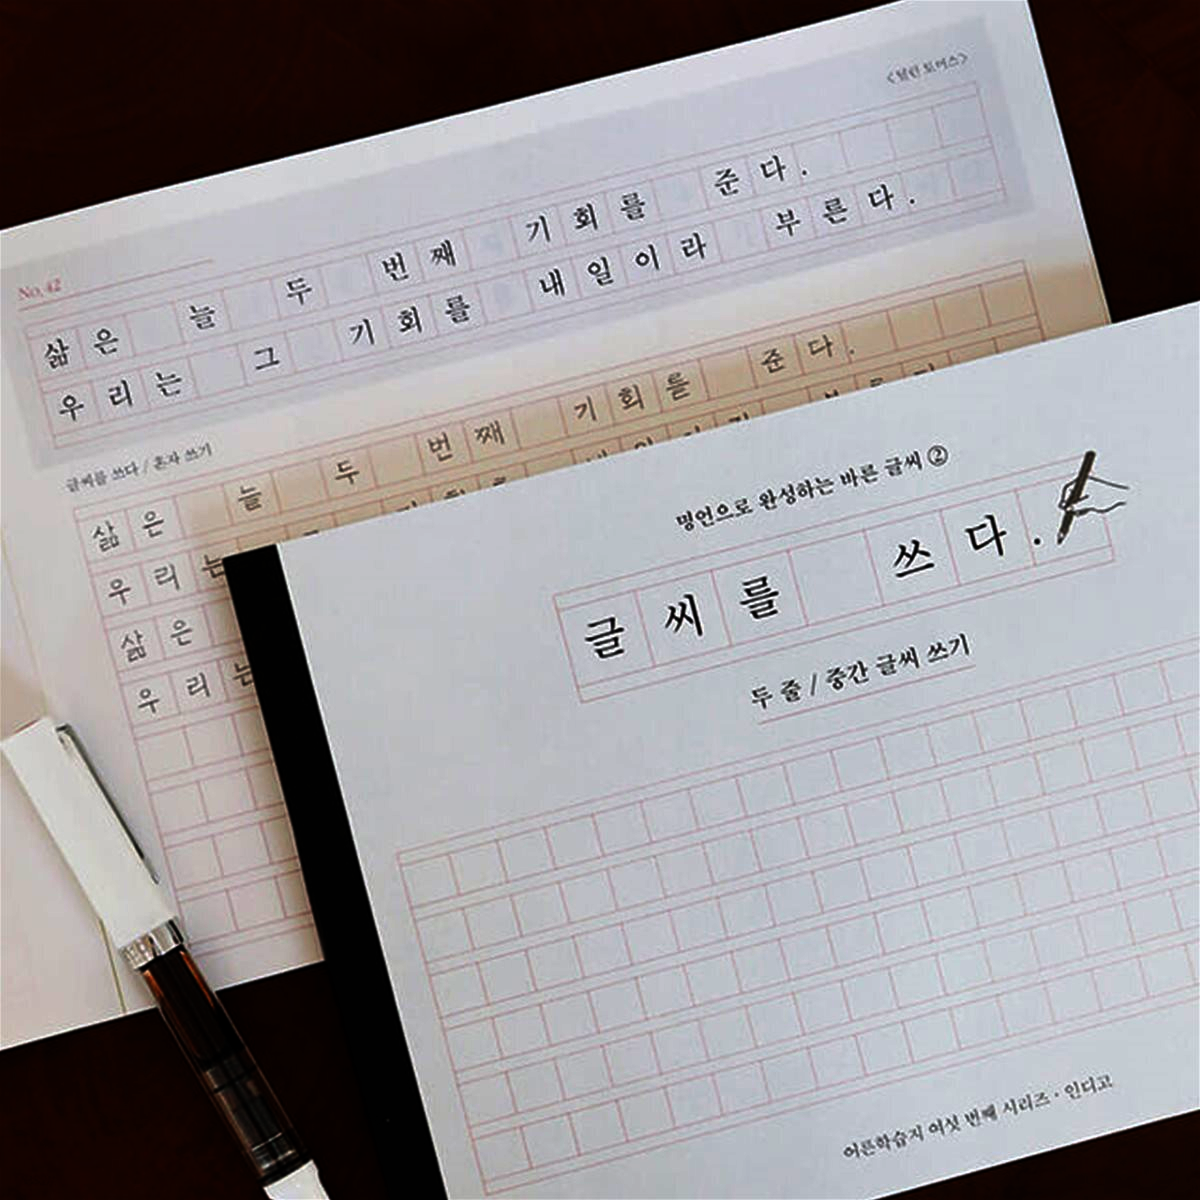 <딜런 토머스>
No. 42
삶은 늘 두 번째 기회를 준다.
우리는 그 기회를 내일이라 부른다.
글씨를 쓰다 / 혼자 쓰기
삶은 늘 두 번째 기회를 준다.
우리는
삶은
우리는
명언으로 완성하는 바른 글씨 ②
글씨를 쓰다.
두 줄 / 중간 글씨 쓰기
어른학습지 여섯 번째 시리즈 · 인디고